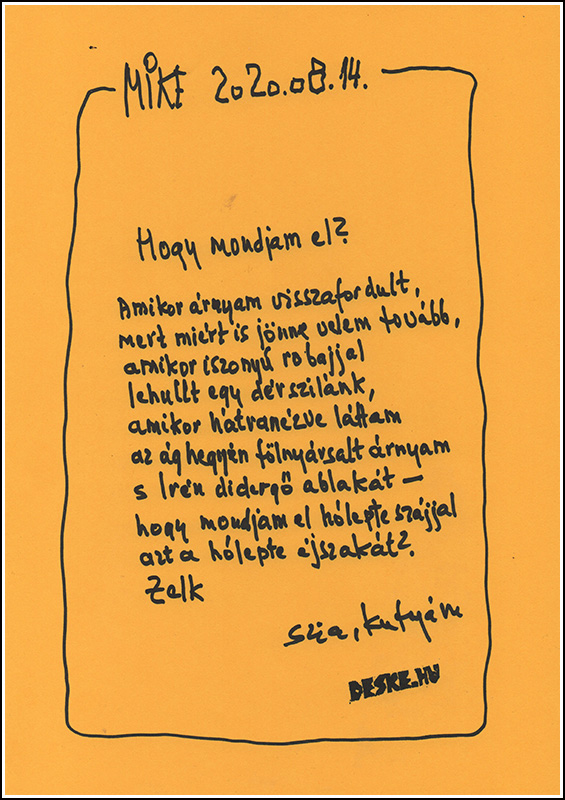 MIKE 2020.08.14.
Hogy mondjam el?
Amikor árnyam visszafordult,
mert miért is jönne velem tovább,
amikor iszonyú robajjal
lehullt egy dérszilánk,
amikor hátranézve láttam
az ág hegyén fölnyársalt árnyam
s Irén didergő ablakát –
hogy mondjam el hólepte szájjal
azt a hólepte éjszakát?
Zelk
szia, kutyám
DESKE.HU